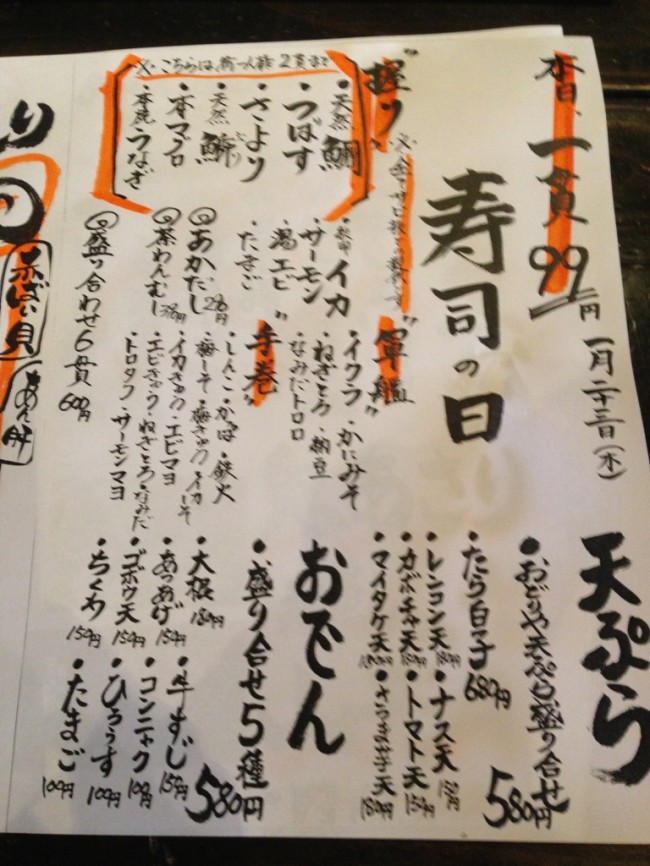 本日、一貫99円
一月二十三日(木)
寿司の日
"握り"
※こちらは、お一人様2貫まで
・天然鯛
・つばす
・さより
・天然鰤
・本マグロ
・本焼うなぎ
イカ
・サーモン
・湯エビ
・たまご
"軍艦"
・イクラ・かにみそ
・ねぎとろ・納豆
・なみだトロロ
"手巻"
・しんこ・かっぱ・鉄火
・梅しそ・梅きゅう・イカしそ
・イカきゅう・エビマヨ
・エビきゅう・ねぎとろ・なみだ
・トロタク・サーモンマヨ
あかだし
茶わんむし
盛り合わせ6貫 600円
天ぷら
・おどりや天ぷら盛り合せ 580円
・たら白子 680円
・レンコン天 180円
・ナス天 150円
・カボチャ天 180円
・トマト天 150円
・マイタケ天 180円
・ささみ
天 180円
おでん
・盛り合せ5種 580円
・大根 180円
・牛すじ 150円
・あつあげ 150円
・コンニャク 100円
・ゴボウ天 150円
・ひろうす 100円
・ちくわ 150円
・たまご 100円
り
赤ばい貝
あん肝